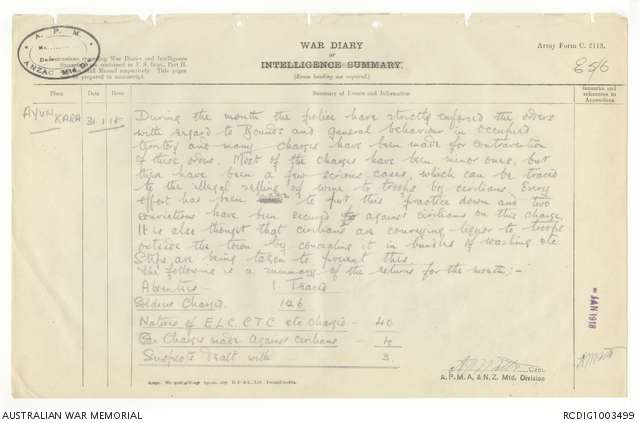 A. P. M.
ANZAC Mtd. D
WAR DIARY
or
INTELLIGENCE SUMMARY.
(Erase heading not required.)
Army Form C. 2118.
Instructions regarding War Diaries and Intelligence
Summaries are contained in F. S. Regs., Part II.
and the Staff Manual respectively. Title pages
will be prepared in manuscript.
Place
Date
Hour
Summary of Events and Information
Remarks and
references to
Appendices
AYUN KARA
31.1.18
During the month the police have strictly enforced the orders
with regard to Bounds and general behaviour in occupied
territory and many charges have been made for contravention
of these orders. Most of the charges have been minor ones, but
there have been a few serious cases, which can be traced
to the illegal selling of wine to troops by civilians. Every
effort has been to put this practice down and two
convictions have been secured against civilians on this charge.
It is also thought that civilians are conveying liquor to troops
outside the town by concealing it in bundles of washing etc
Steps are being taken to prevent this.
The following is a summary of the returns for the month:-
Absentees - 1 Traced
Soldiers Charges. 126
Natives of E.L.C, C.T.C etc charges - 40
Charges made against civilians - 4
Suspects Dealt with - 3.
JAN 1918
Capt.
A. P. M. A. & N.Z. Mtd. Division
AUSTRALIAN WAR MEMORIAL
RCDIG1003499